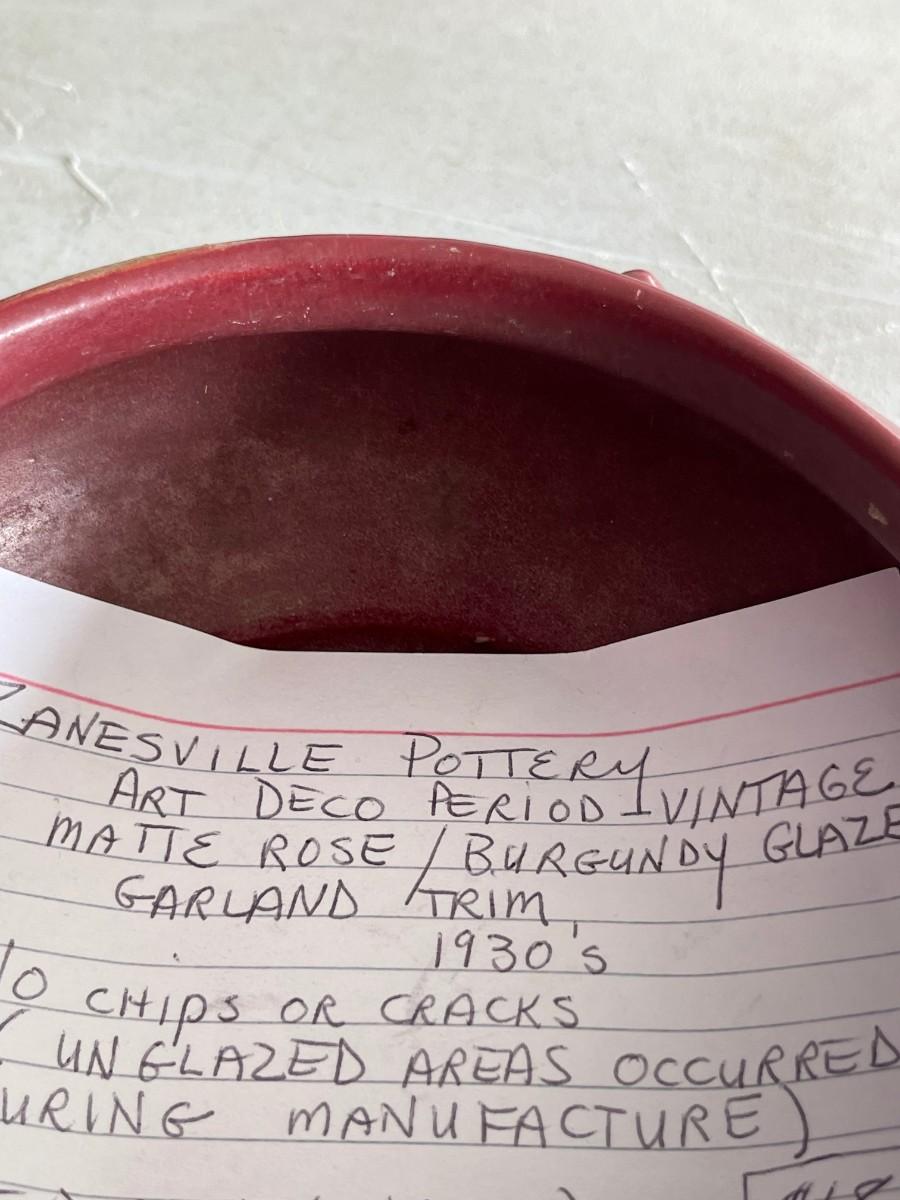 ZANESVILLE POTTERY
ART DECO PERIOD - VINTAGE
MATTE ROSE / BURGUNDY GLAZE
GARLAND TRIM
1930's
/O CHIPS OR CRACKS
( UNGLAZED AREAS OCCURRED
URING MANUFACTURE)